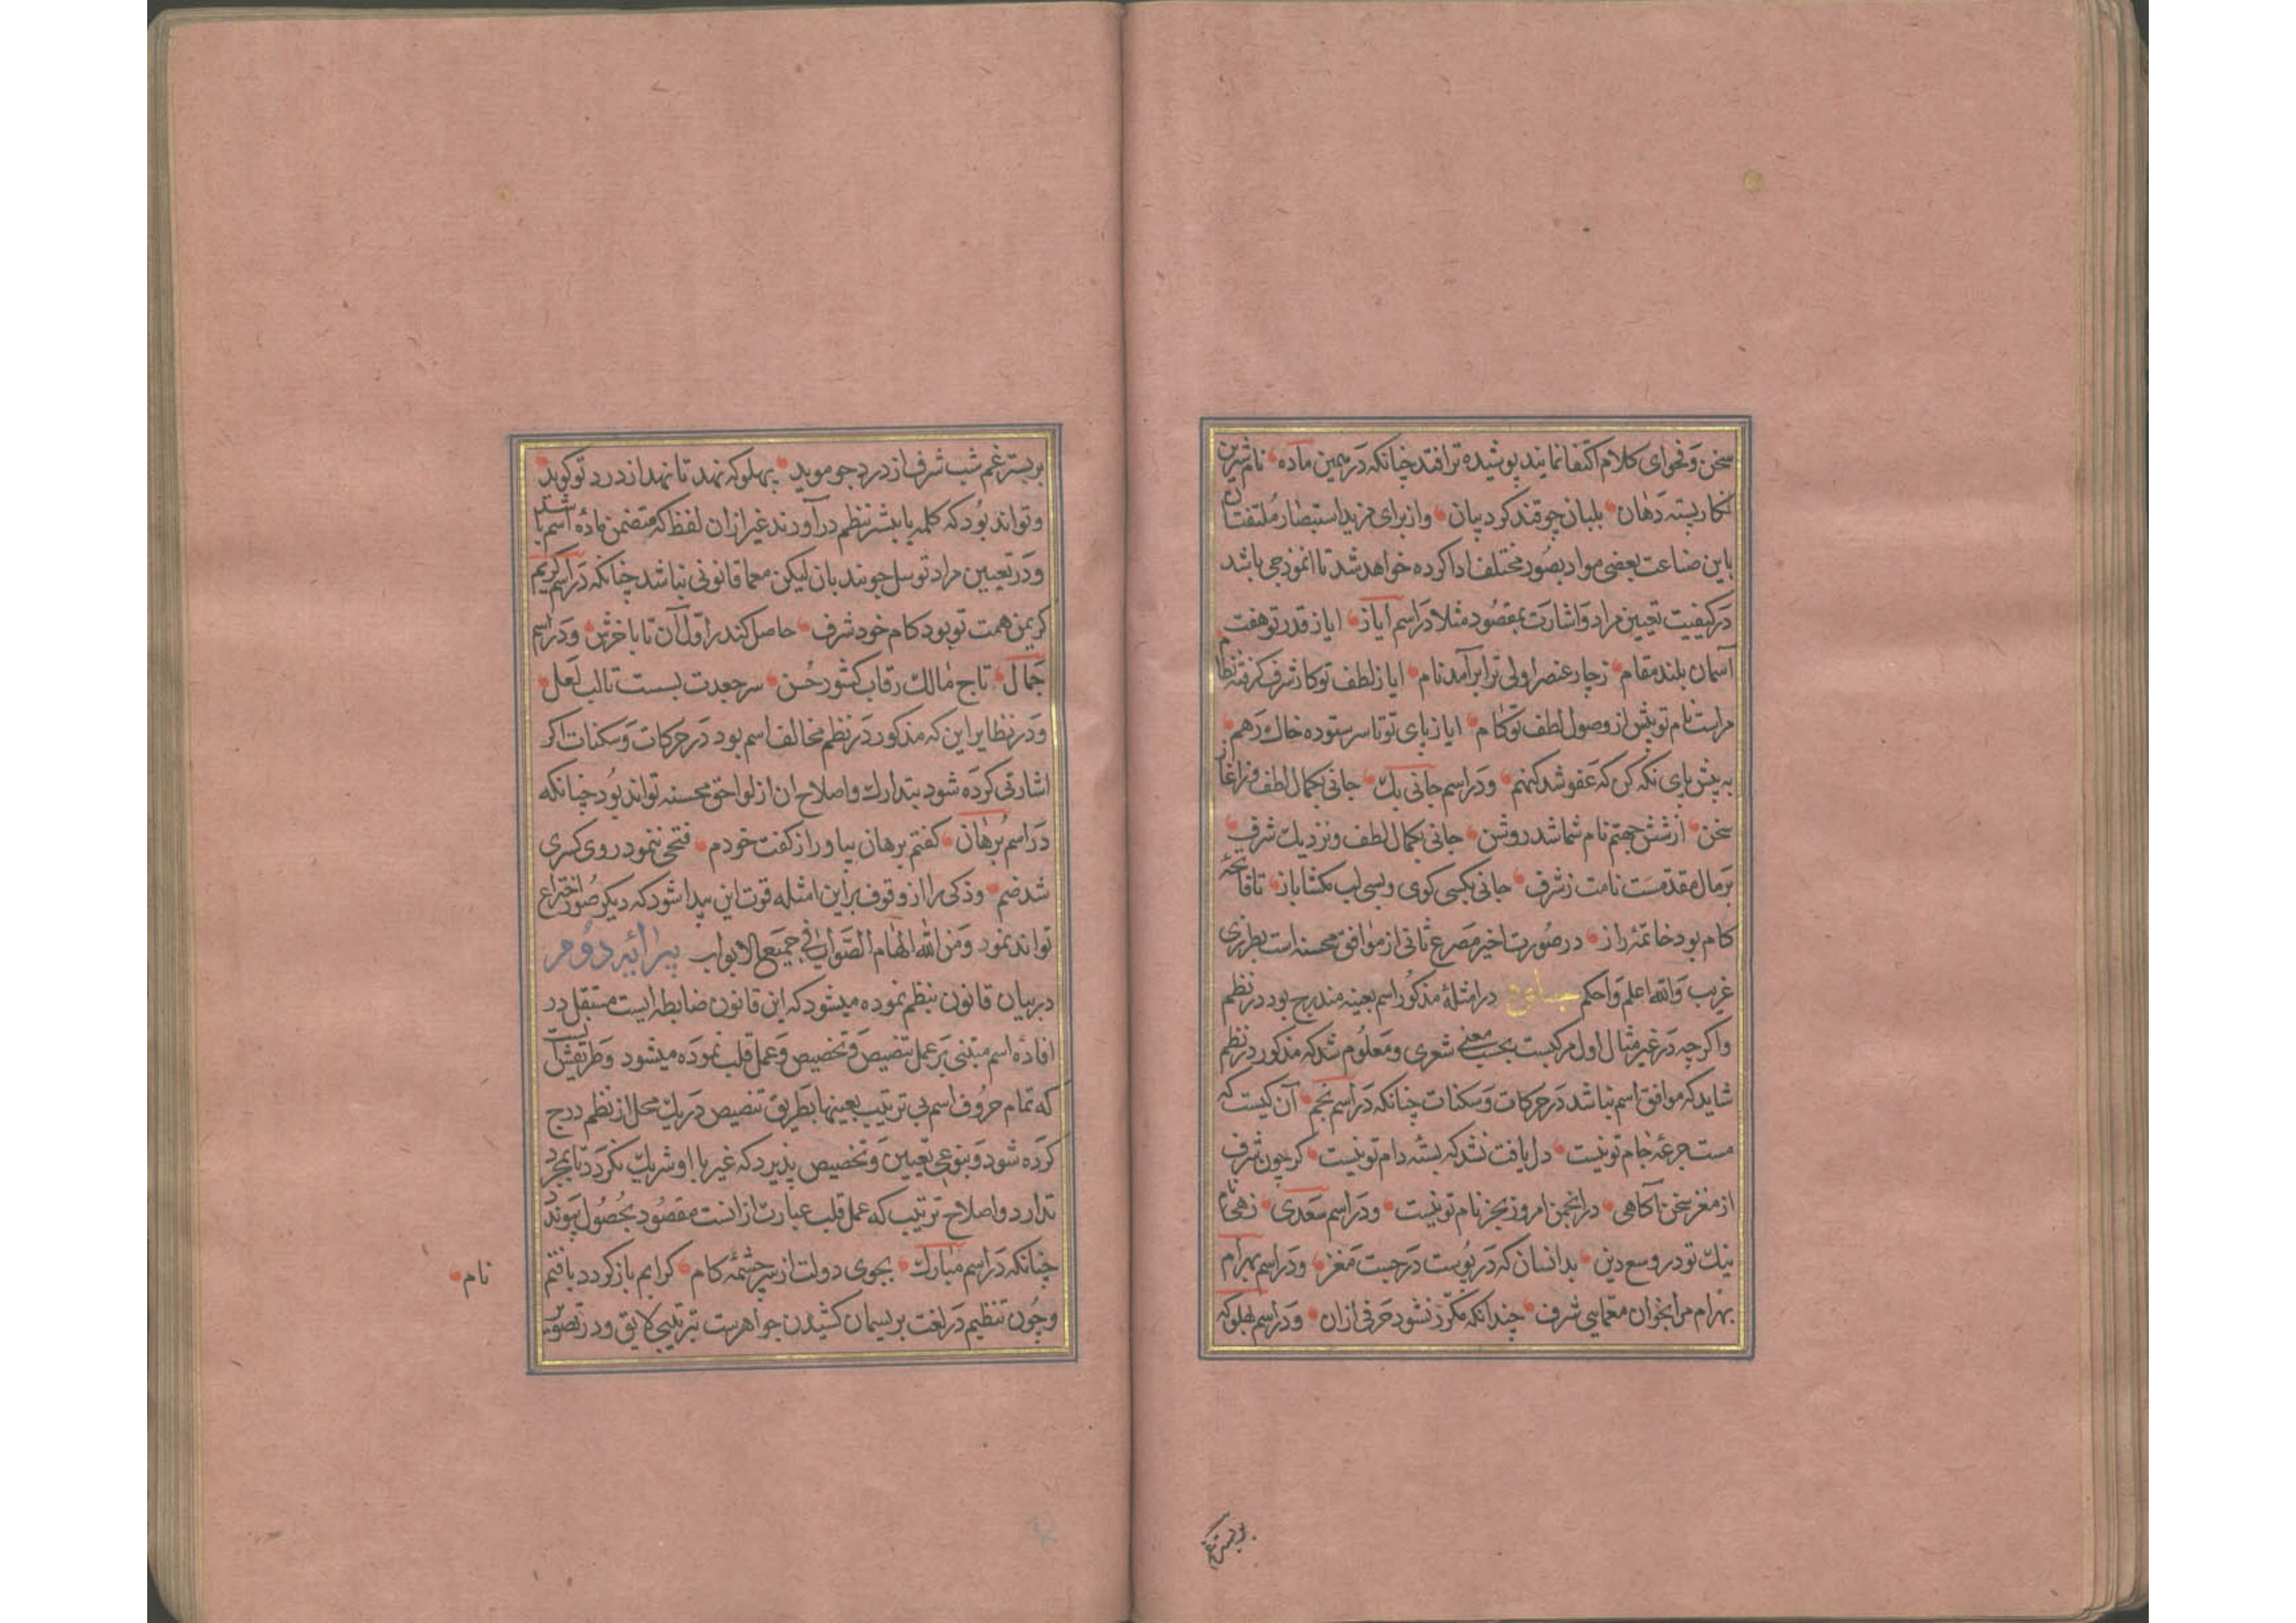 سخن وفحوای کلام اکتفا نمایند پوشیده تر افتد چنانکه در همین ماده نام شیرین
نکار بسته دهان بلبان چو قند کرد بیان واز برای مزید استبصار ملتفتان
باین صناعت بعضی مواد بصور مختلف ادا کرده خواهد شد تا انموذجی باشد
در کیفیت تعیین مراد واشارت بمقصود مثلا در اسم ایاز ایا ز قدر تو هفت
آسمان بلند مقام ز چار عنصر اولی ترا برآمد نام ایا ز لطف تو کار شرف کرفته نظام
مراست نام تو بیش از وصول لطف تو کام ایا ز پای تو تا سر ستوده خاک رهم
به پیش پای نکه کن که عفو شد کنهم ودر اسم جانی بک جانی بکمال لطف وز اغاز
سخن از شش جهتم نام شما شد روشن جانی بکمال لطف ونزدیک شرف
بر مال مقدمست نامت ز شرف جانی بکسی کوی وبسی لب مکشا باز تا فاتحهٔ
کام بود خاتمهٔ راز در صورت اخیر مصرع ثانی از موافق محسنه است بطرزی
غریب والله اعلم واحکم در امثلهٔ مذکور اسم بعینه مندرج بود در نظم
واکرچه در غیر مثال اول مرکبست بحسب معنی شعری ومعلوم شد که مذکور در نظم
شاید که موافق اسم نباشد در حرکات وسکنات چنانکه در اسم نجم آن کیست که
مست جرعهٔ جام تو نیست دل یافت نشد که بستهٔ دام تو نیست کر چون شرف
از مغز سخن آکاهی در انجمن امروز بجز نام تو نیست ودر اسم سعدی زهی نام
نیک تو در وسع دین بدانسان که در پوست در جست مغز ودر اسم بهرام
بهرام مرا بخوان معمایی شرف چندانکه مکرر نشود حرفی ازان ودر اسم بهلو که
بر بستر غم
بر بستر غم شب شرف از درد چو موید پهلو که نهد تا نهد از درد تو کوید
وتواند بود که کلمه یا بیشتر بنظم درآورند غیر ازان لفظ که متضمن مادهٔ اسم باشد
ودر تعیین مراد توسل جویند بان لیکن معما قانونی نباشد چنانکه در اسم کریم
کر یمن همت تو بود کام خود شرف حاصل کند ز اول آن تا باخرش ودر اسم
جمال تاج مالک رقاب کشور حسن سر جعدت ببست تا لب لعل
ودر نظایر این که مذکور در نظم مخالف اسم بود در حرکات وسکنات اکر
اشارتی کرده شود بتدارک واصلاح ان از لواحق محسنه تواند بود چنانکه
در اسم برهان کفتم برهان بیاور از کفت خودم فتحی ننمود روی کسری
شد ضم وذکی را از وقوف براین امثله قوت این پیدا شود که دیکر صور اختراع
تواند نمود ومن الله الهام الصواب فی جمیع الابواب پیرایهٔ دوم
در بیان قانون بنظم نموده میشود که این قانون ضابطه ایست مستقل در
افادهٔ اسم مبتنی بر عمل تنصیص وتخصیص وعمل قلب نموده میشود وطریقش آنست
که تمام حروف اسم بی ترتیب بعینها بطریق تنصیص در یک محل از نظم درج
کرده شود وبنوعی تعیین وتخصیص پذیرد که غیر با او شریک نکردد تا بمجرد
تدارد واصلاح ترتیب که عمل قلب عبارت ازانست مقصود بحصول پیوندد
چنانکه در اسم مبارک بجوی دولت از سرچشمهٔ کام کر ابم باز کردد یافتم
نام
وچون تنظیم در لغت بریسمان کشیدن جواهرست بترتیبی لایق ودر تصویر